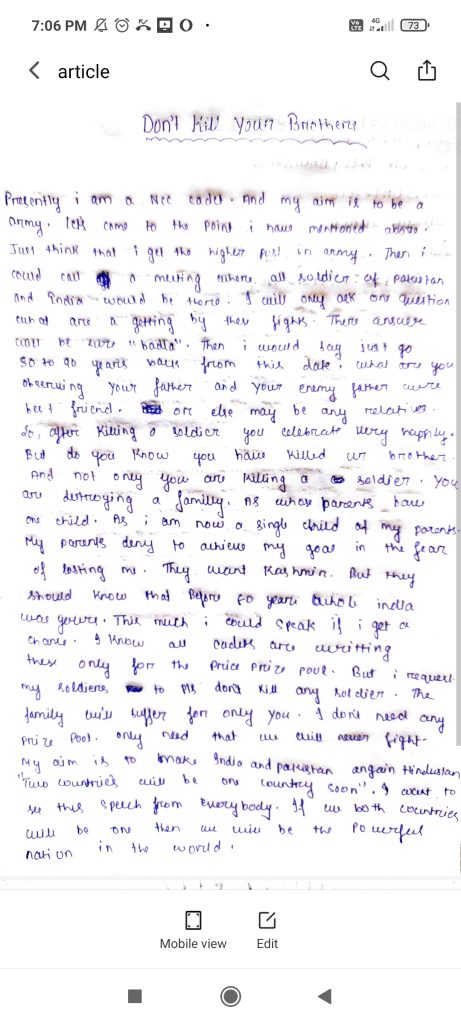 7:06 PM
4G
Vo LTE
73
article
Don't Kill Your Brothers
Presently i am a Ncc cadet. And my aim is to be a
army. lets come to the point i have mentioned above.
Just think that i get the higher post in army. Then i
could call a meeting where all soldier of pakistan
and India would be there. I will only ask one question
what are a getting by this fight. There answer
will be sure "badla". Then i would say just go
80 to 90 years back from this date. what are you
observing your father and your enemy father were
best friend. or else may be any relative.
So, after killing a soldier you celebrate very happily.
But do you know you have killed ur brother.
And not only you are killing a soldier. You
are destroying a family. As whose parents have
one child. As i am now a single child of my parents.
My parents deny to achieve my goal in the fear
of losting me. They want Kashmir. But they
should know that Before 80 years whole india
was yours. This much i could speak if i get a
chance. I know all cadets are writting
this only for the Price Prize pool. But i request
my soldiers to pls don't kill any soldier. The
family will suffer for only you. I don't need any
Prize Pool. only need that we will never fight.
My aim is to make India and pakistan angain Hindustan
"Two countries will be one country soon". I want to
see this speech from everybody. If we both countries
will be one then we will be the Powerful
nation in the world.
Mobile view
Edit